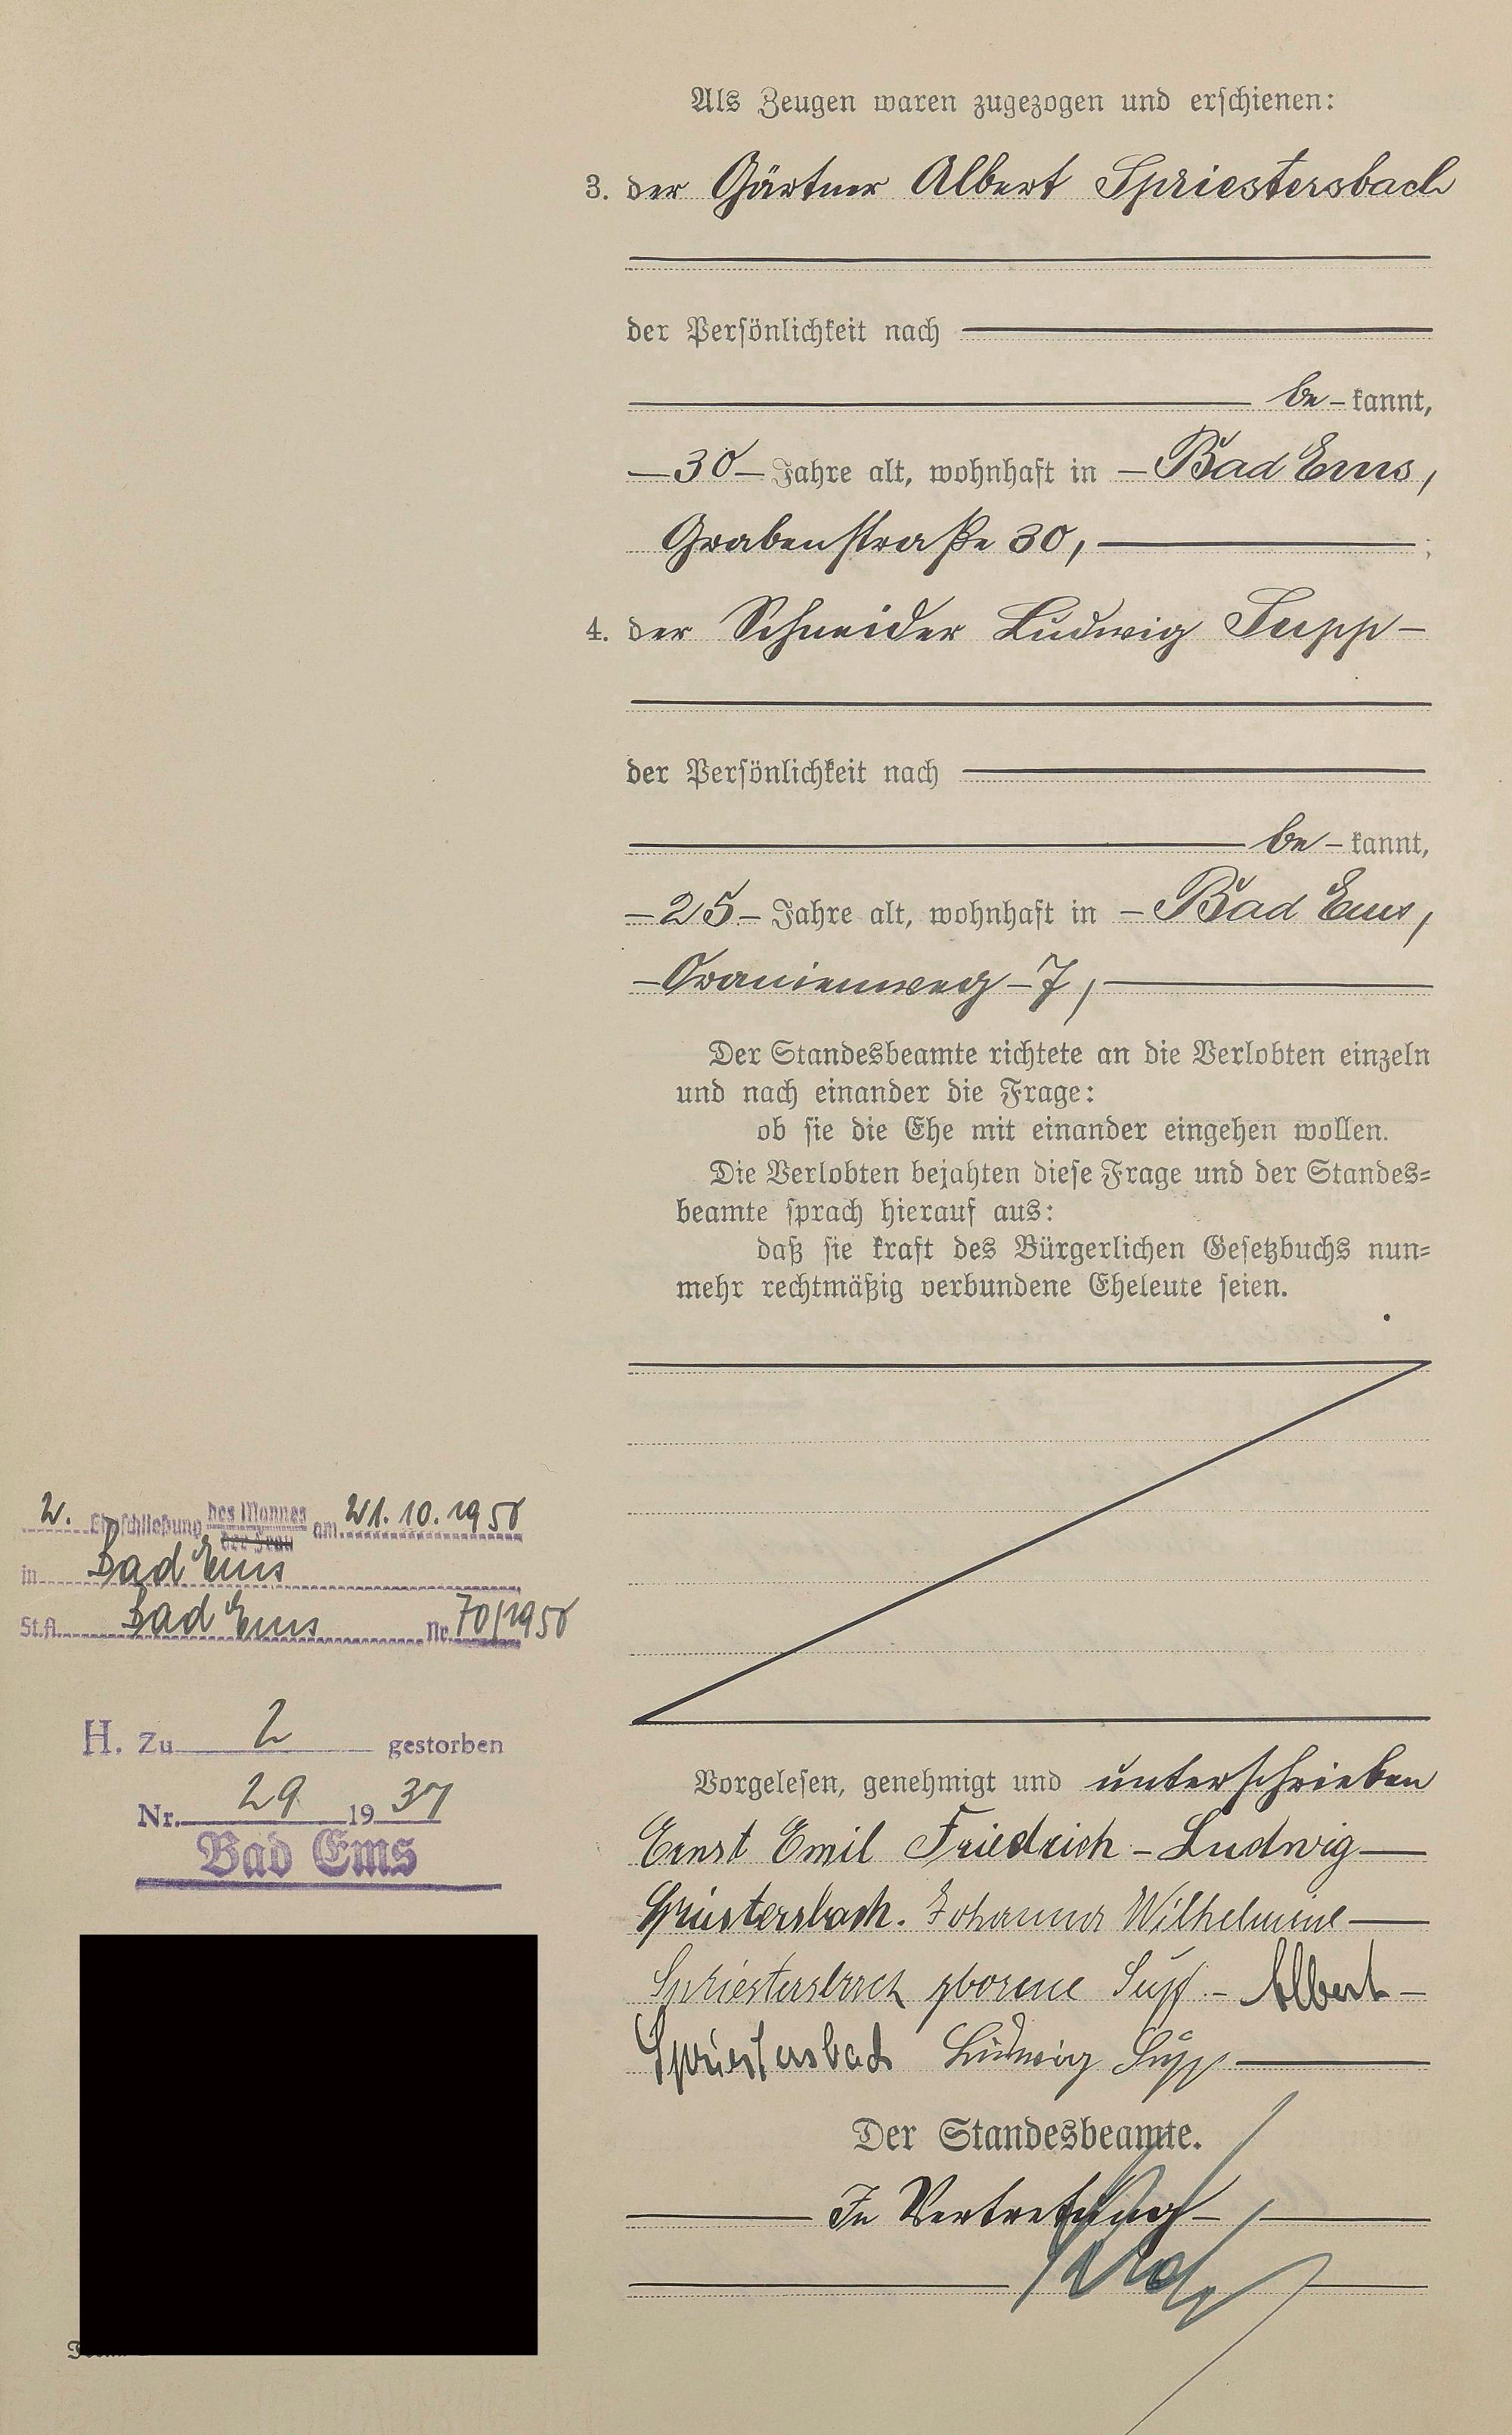 Als Zeugen waren zugezogen und erschienen:
3. der Gärtner Albert Spriestersbach
der Persönlichkeit nach
be- kannt,
-30- Jahre alt, wohnhaft in - Bad Ems,
Grabenstraße 30, ;
4. der Schneider Ludwig Supp -
der Persönlichkeit nach
be- kannt,
-25- Jahre alt, wohnhaft in - Bad Ems,
- Oranienweg - 7,
Der Standesbeamte richtete an die Verlobten einzeln
und nach einander die Frage:
ob sie die Ehe mit einander eingehen wollen.
Die Verlobten bejahten diese Frage und der Standes=
beamte sprach hierauf aus:
daß sie kraft des Bürgerlichen Gesetzbuchs nun=
mehr rechtmäßig verbundene Eheleute seien.
2. Eheschließung des Mannes der Frau am 21.10.1950
in Bad Ems
St.A. Bad Ems Nr. 70/1950
H. Zu 2 gestorben
Nr. 29 19 37
Bad Ems
Vorgelesen, genehmigt und unterschrieben
Ernst Emil Friedrich - Ludwig
Spriestersbach. Johanna Wilhelmine
Spriestersbach geborene Supp. - Albert -
Spriestersbach Ludwig Supp
Der Standesbeamte.
In Vertretung